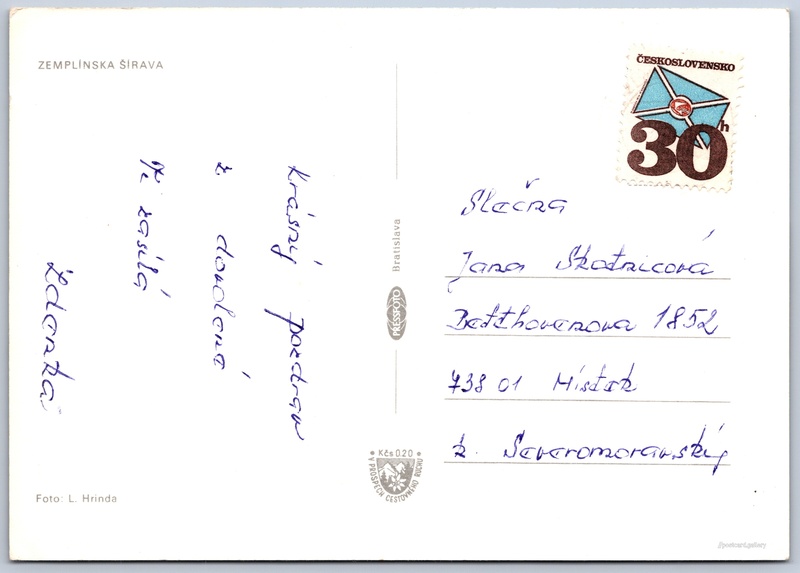 ZEMPLÍNSKA ŠÍRAVA
Krásný pozdrav
z dovolené
Ti zasílá
Zdenka
Foto: L. Hrinda
Bratislava
PRESSFOTO
Kčs 0.20
V PROSPECH CESTOVNÉHO RUCHU
ČESKOSLOVENSKO
30h
Slečna
Jana Skotnicová
Betthovenova 1852
738 01 Místek
k. Severomoravský
@postcard.gallery